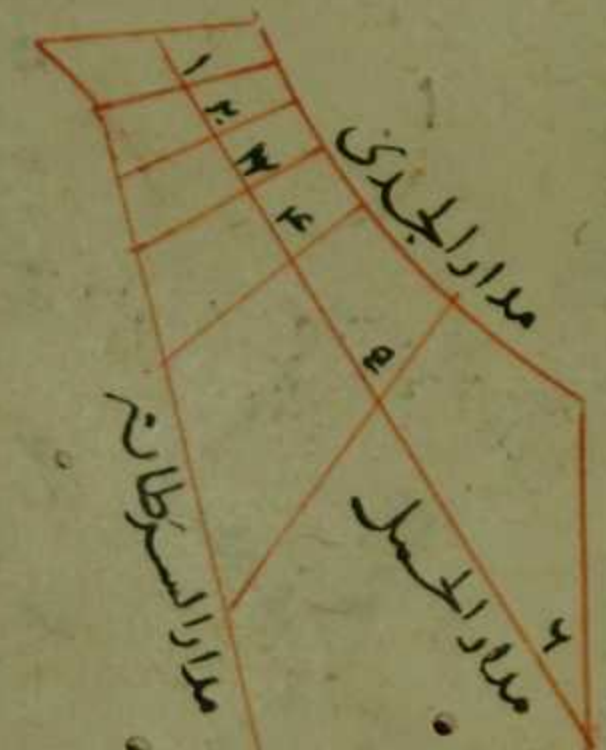 ۱
۲
۳
۴
۵
۶
مدار الجدى
مدار الحمل
مدار السرطان